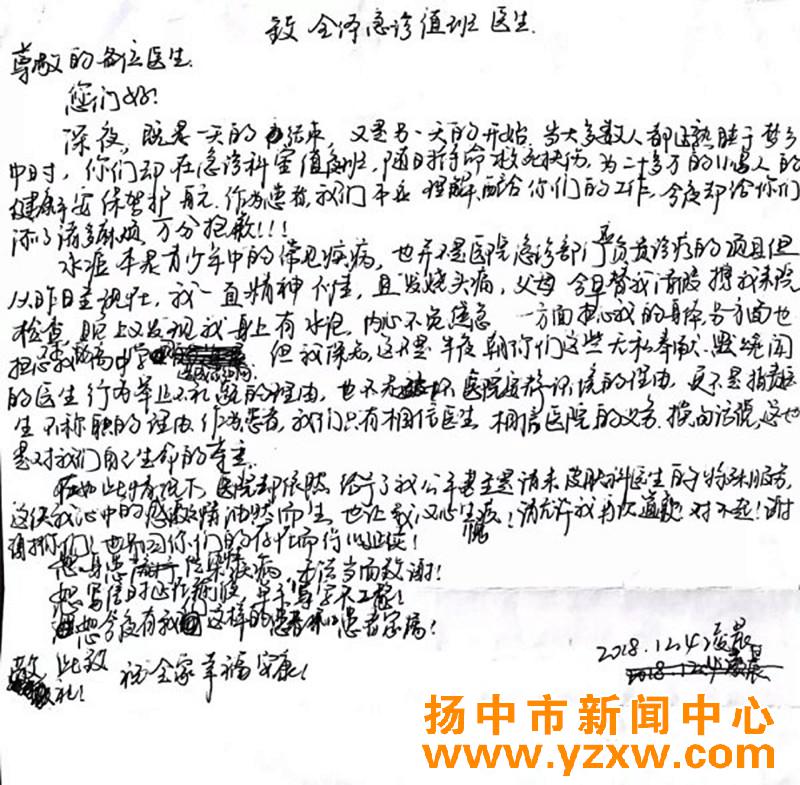 致 全体急诊值班医生.
尊敬的各位医生.
您们好!
深夜, 既是一天的结束, 又是另一天的开始. 当大多数人都已熟睡于梦乡
中时, 你们却在急诊科室值夜班, 随时待命救死扶伤, 为二十多万的人的
健康平安保驾护航. 作为患者, 我们本应理解、配合你们的工作, 今夜却给你们
添了诸多麻烦, 万分抱歉!!!
水痘本是青少年中的常见疾病, 也并不是医院急诊部门负责诊疗的项目但
从昨日去就, 我一直精神不佳, 且发烧头痛, 父母今日替我请假携我来院
检查. 晚上又发现我身上有水泡, 内心不免焦急 一方面担心我的身体, 另方面也
担心我高中学. 但我深知, 这不是半夜朝你们这些无私奉献、默默
的医生行为举止不礼的理由, 也不是破坏医院安静环境的理由, 更不是指责医
生不称职的理由. 作为患者, 我们只有相信医生 相信医院的义务. 换句话说, 这也
是对我们自己生命的尊重.
在如此情况下, 医院却依然给予了我公平甚至是请来皮肤科医生的特殊服务,
这使我心中的感激之情油然而生, 也让我心生愧疚! 请允许我再次道歉: 对不起! 谢
谢你们! 也
恕身患传染疾病, 无法当面致谢!
恕写信时, 字不工整!
恕今夜有我们这样的患者和患者家属!
此致 祝全家幸福安康!
敬礼!
2018.12.4凌晨
2018.12.4凌晨
扬中市新闻中心
www.yzxw.com